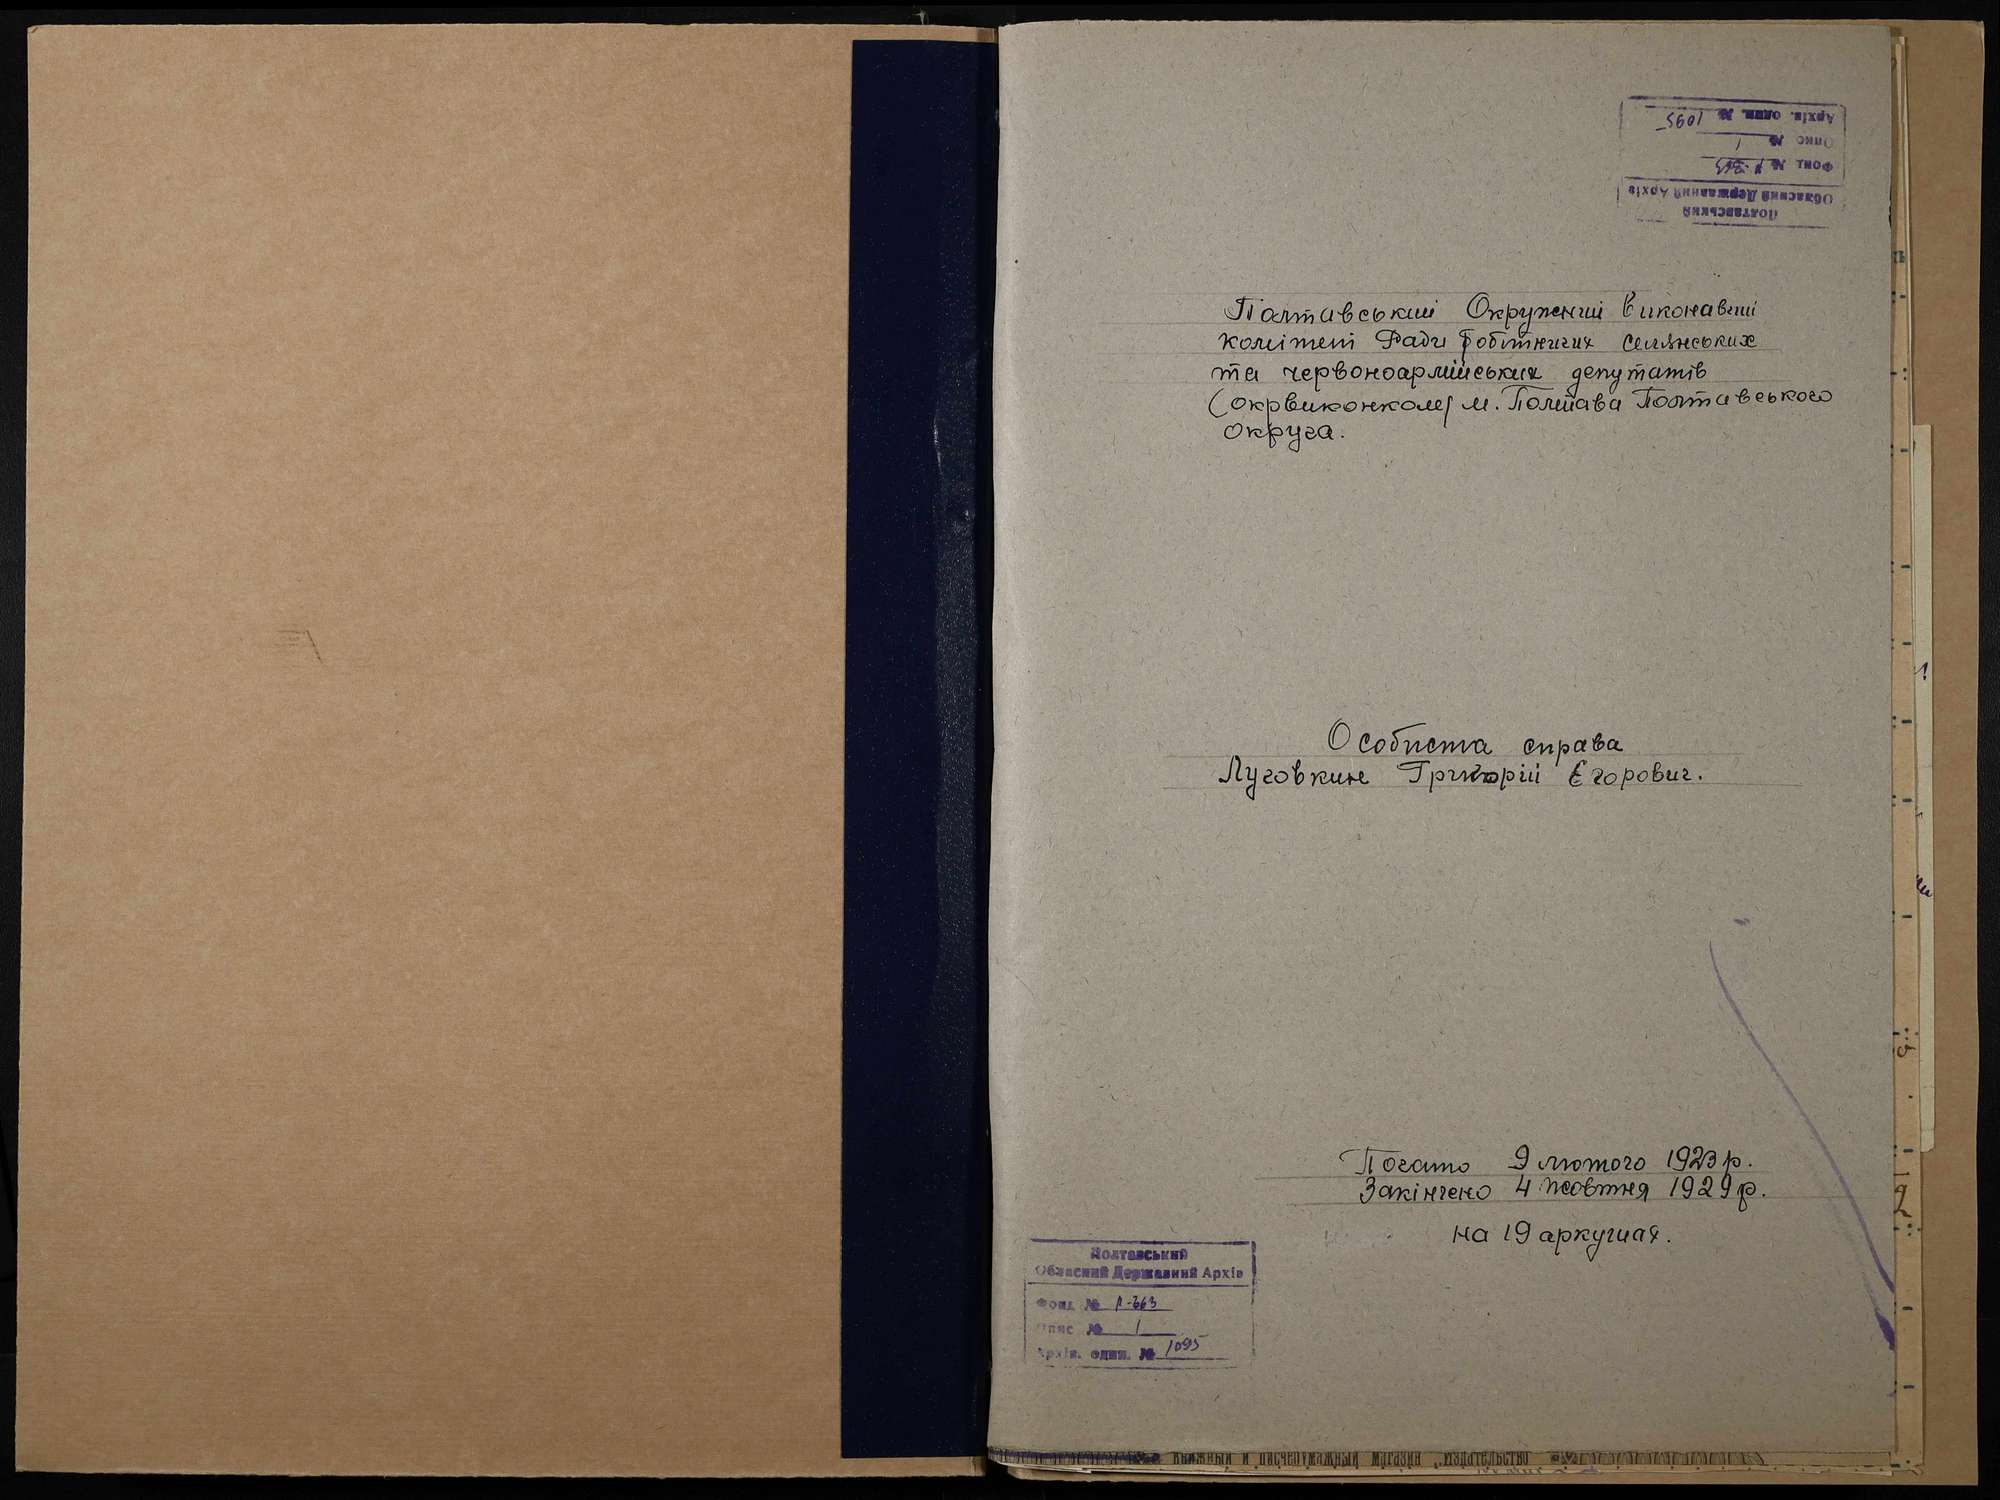 Полтавський
Обласний Державний Архів
Фонд № Р-363
Опис № 1
Архів. один. № 1095
Полтавський Окружний виконавчий
комітет Ради робітничих селянських
та червоноармійських депутатів
(окрвиконком) м. Полтава Полтавського
округа.
Особиста справа
Луговкин Григорій Єгорович.
Почато 9 лютого 1923 р.
Закінчено 4 жовтня 1929 р.
на 19 аркушах.
Полтавський
Обласний Державний Архів
Фонд № Р-363
Опис № 1
Архів. один. № 1095
книжный и писчебумажный магазин "издательство